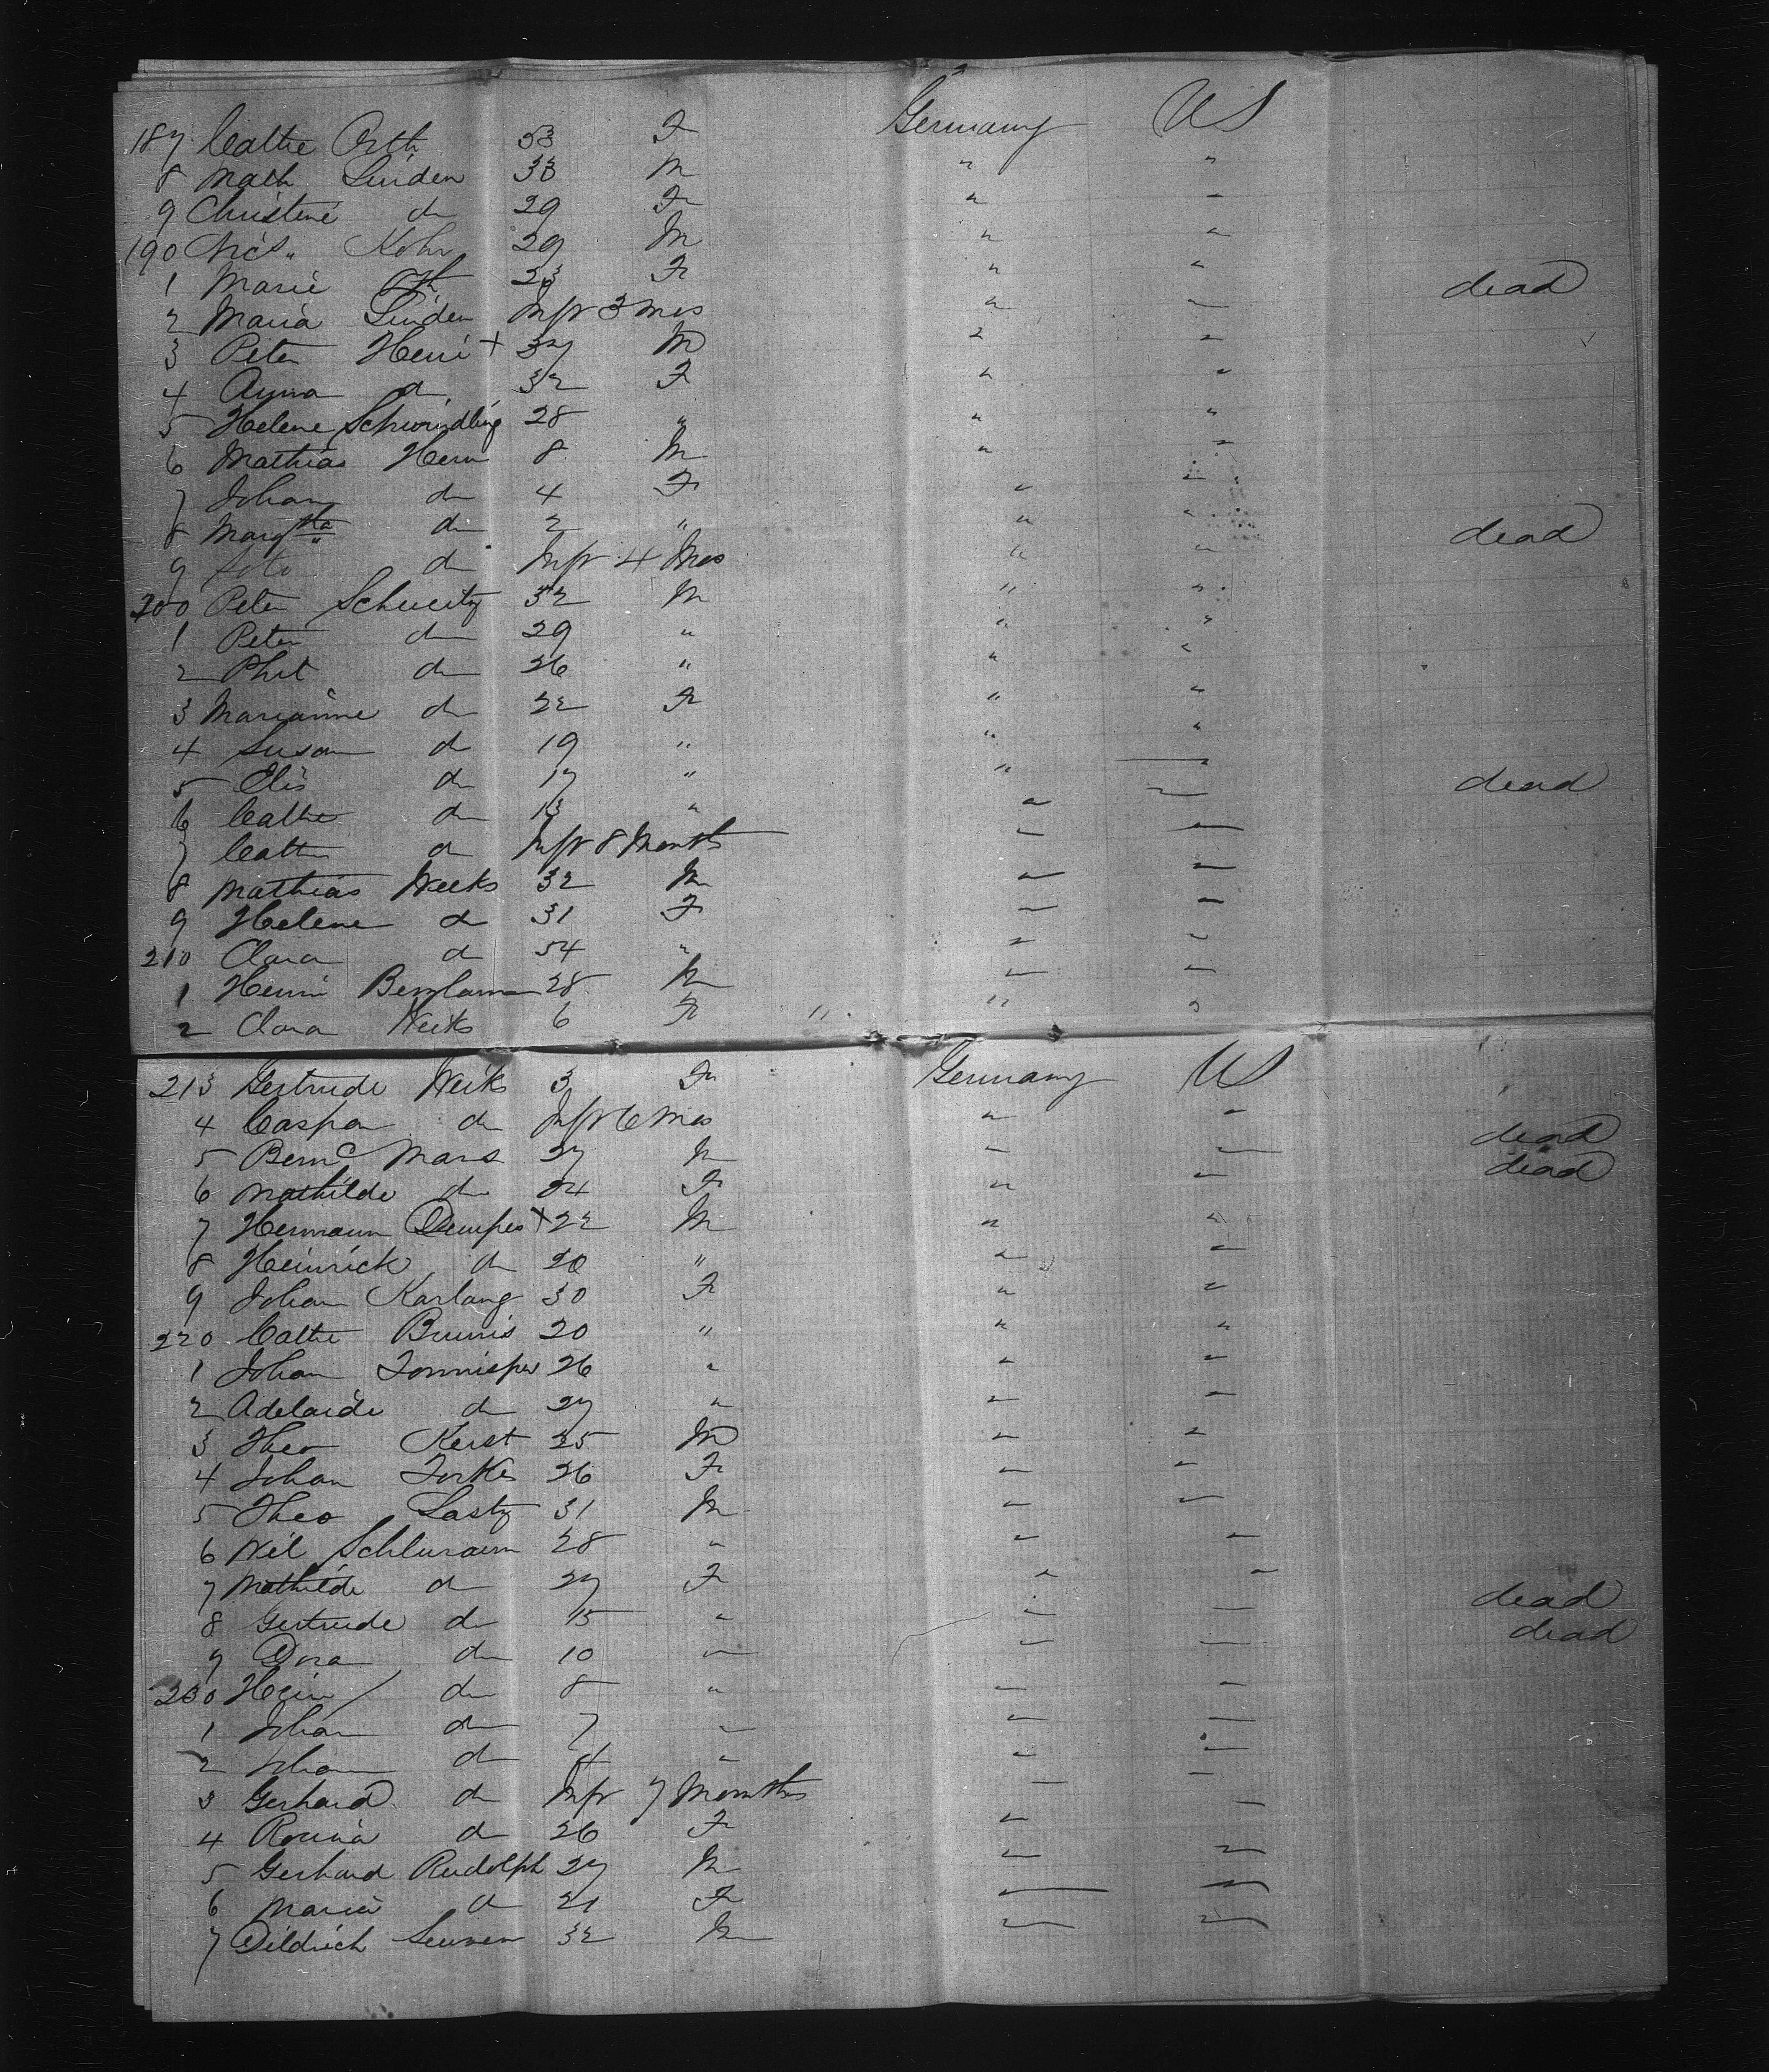 187 Cathe Orth 53 F Germany US
8 Math Linden 33 M " "
9 Christine do 29 F " "
190 Nics. Kohn 29 M " "
1 Marie Orth 23 F " "
2 Maria Linden Inft 3 Mos " " dead
3 Peter Henri + 37 M " "
4 Anna do 32 F " "
5 Helene Schwindling 28 " " "
6 Mathias Henn 8 M " "
7 Johan do 4 F " "
8 Margtha do 2 " " "
9 do Inft 4 Mos " " dead
200 Peter Scheeitz 32 M " "
1 Peter do 29 " " "
2 Phil do 26 " " "
3 Marianne do 22 F " "
4 Susan do 19 " " "
5 Elis do 17 " " "
6 Cathe do 13 " " "
7 Cathe do Inft 8 Months " " dead
8 Mathias Weeks 32 M " "
9 Helene do 31 F " "
210 Clara do 54 " " "
1 Henri 28 M " "
2 Clara Weiks 6 F " " "
213 Gertrude Weiks 3 F Germany US
4 Caspar do Inft 6 Mos " " dead
5 Bernd Mans 27 M " " dead
6 Mathilde do 24 F " "
7 Hermann Dempes + 22 M " "
8 Heinrick do 20 " " "
9 Johan Karlang 30 F " "
220 Cathe Bruns 20 " " "
1 Johan Tonnisper 26 " " "
2 Adelaide do 27 " " "
3 Theo Kerst 25 M " "
4 Johan Forkes 26 F " "
5 Theo Lastz 31 M " "
6 Wil Schluraum 28 " " "
7 Mathilde do 27 F " "
8 Gertrude do 15 " " " dead
9 Dora do 10 " " " dead
230 Hein / do 8 " " "
1 Johan do 7 " " "
2 Johan do 4 " " "
3 Gerhard do Inft 7 Months " "
4 Rosina do 26 F " "
5 Gerhard Rudolph 27 M " "
6 Maria do 21 F " "
7 Dildrich 32 M " "